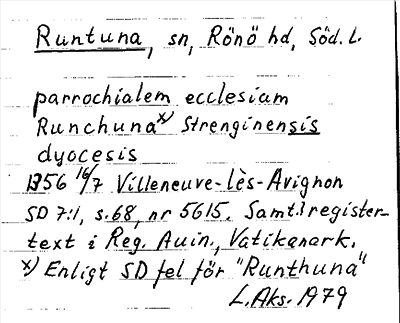 Runtuna, sn, Rönö hd, Söd. L.
parrochialem ecclesiam
Runchuna x) Strenginensis
dyocesis
1356 16/7 Villeneuve-lès-Avignon
SD 7:1, s.68, nr 5615. Samt. register-
text i Reg. Auin., Vatikanark.
x) Enligt SD fel för "Runthuna"
L. Aks. 1979